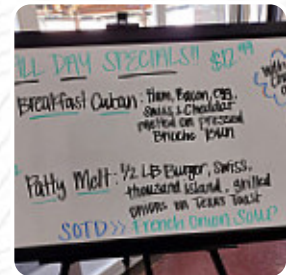 ALL DAY SPECIALS!! $12.99
Breakfast Cuban: Ham, Bacon, egg,
Swiss & Cheddar
melted on pressed
Brioche Bun
Patty Melt: 1/2 LB Burger, Swiss,
thousand island, grilled
onions on Texas Toast
SOTD>> French Onion Soup